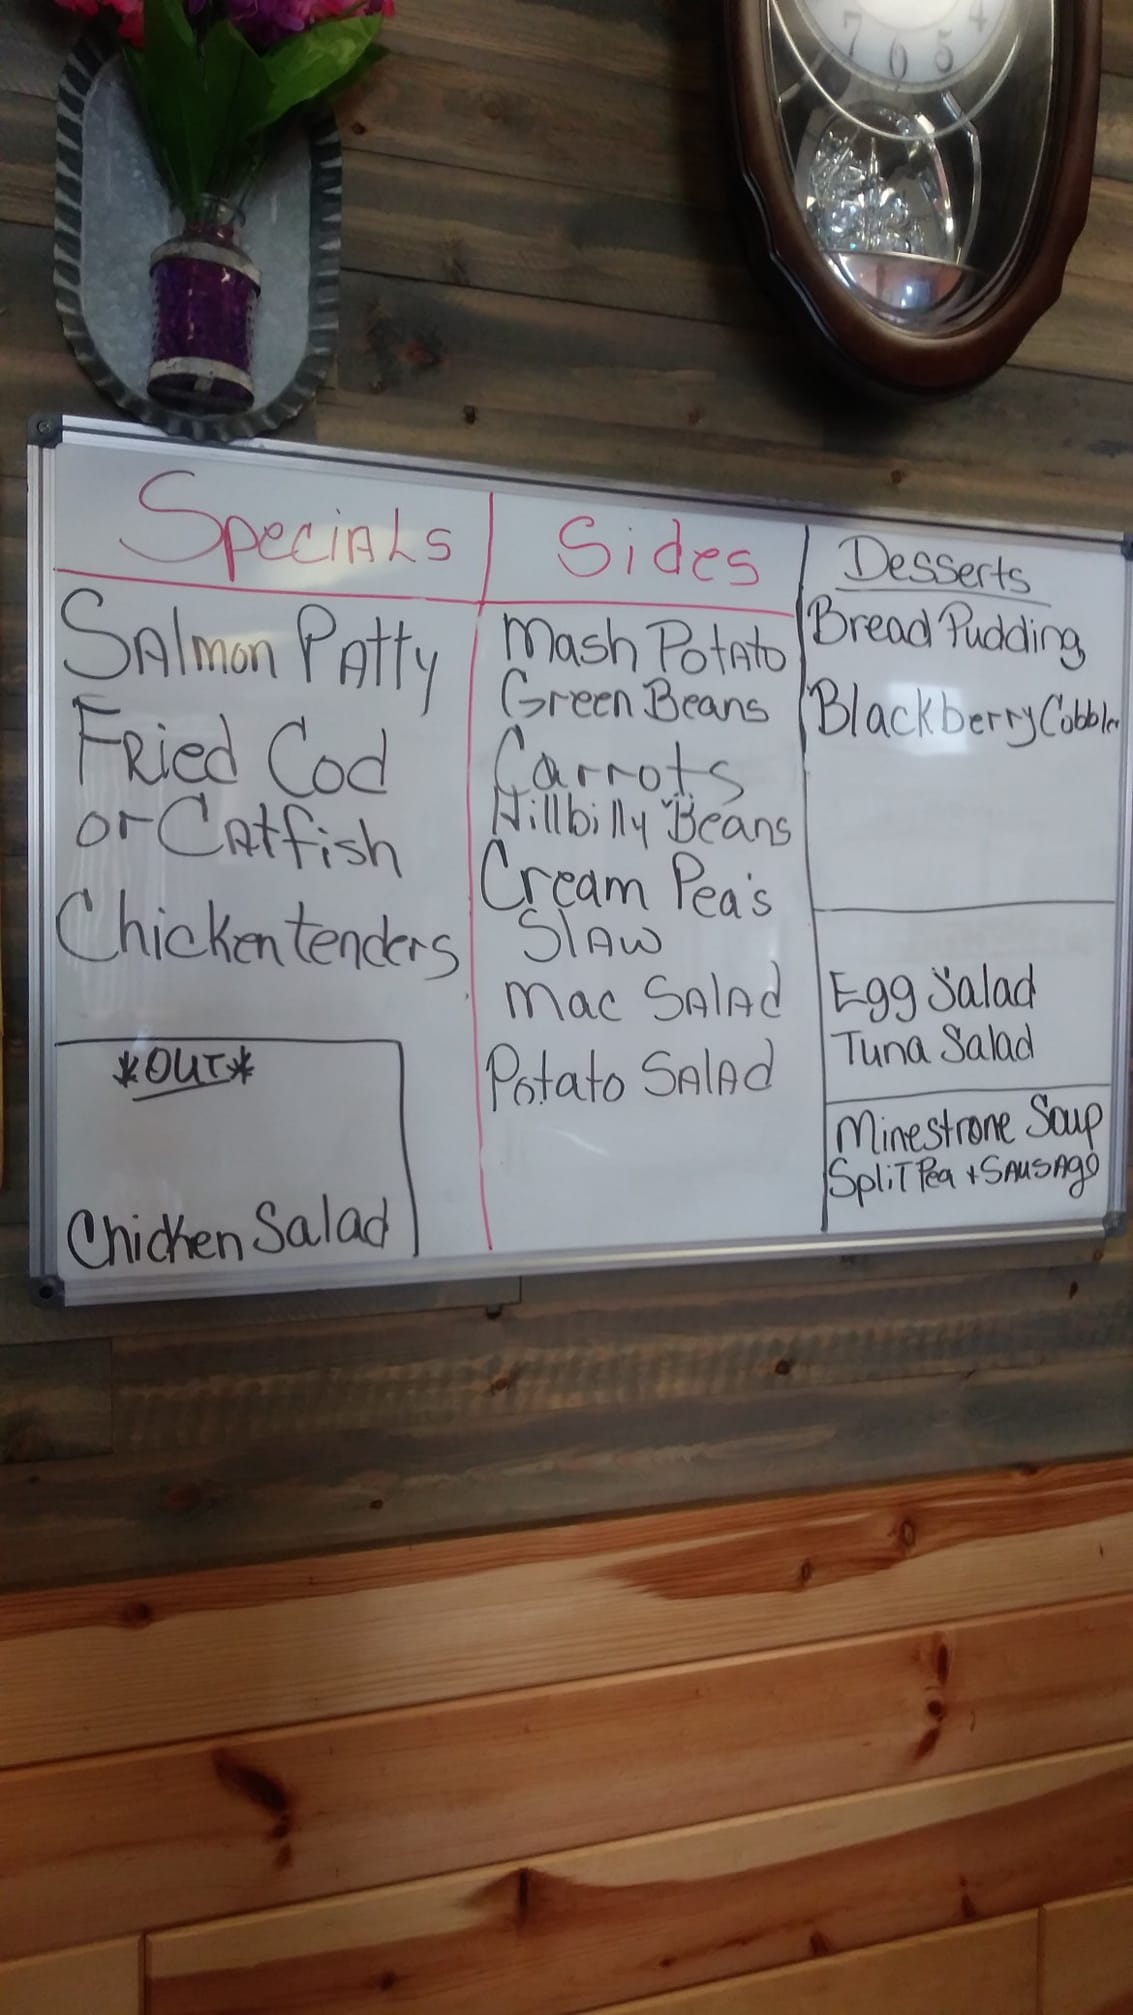 7 6 5 4
Specials
Salmon Patty
Fried Cod
or Catfish
Chicken tenders
*OUT*
Chicken Salad
Sides
Mash Potato
Green Beans
Carrots
Hillbilly Beans
Cream Pea's
Slaw
Mac Salad
Potato Salad
Desserts
Bread Pudding
Blackberry Cobbler
Egg Salad
Tuna Salad
Minestrone Soup
Split Pea + Sausage